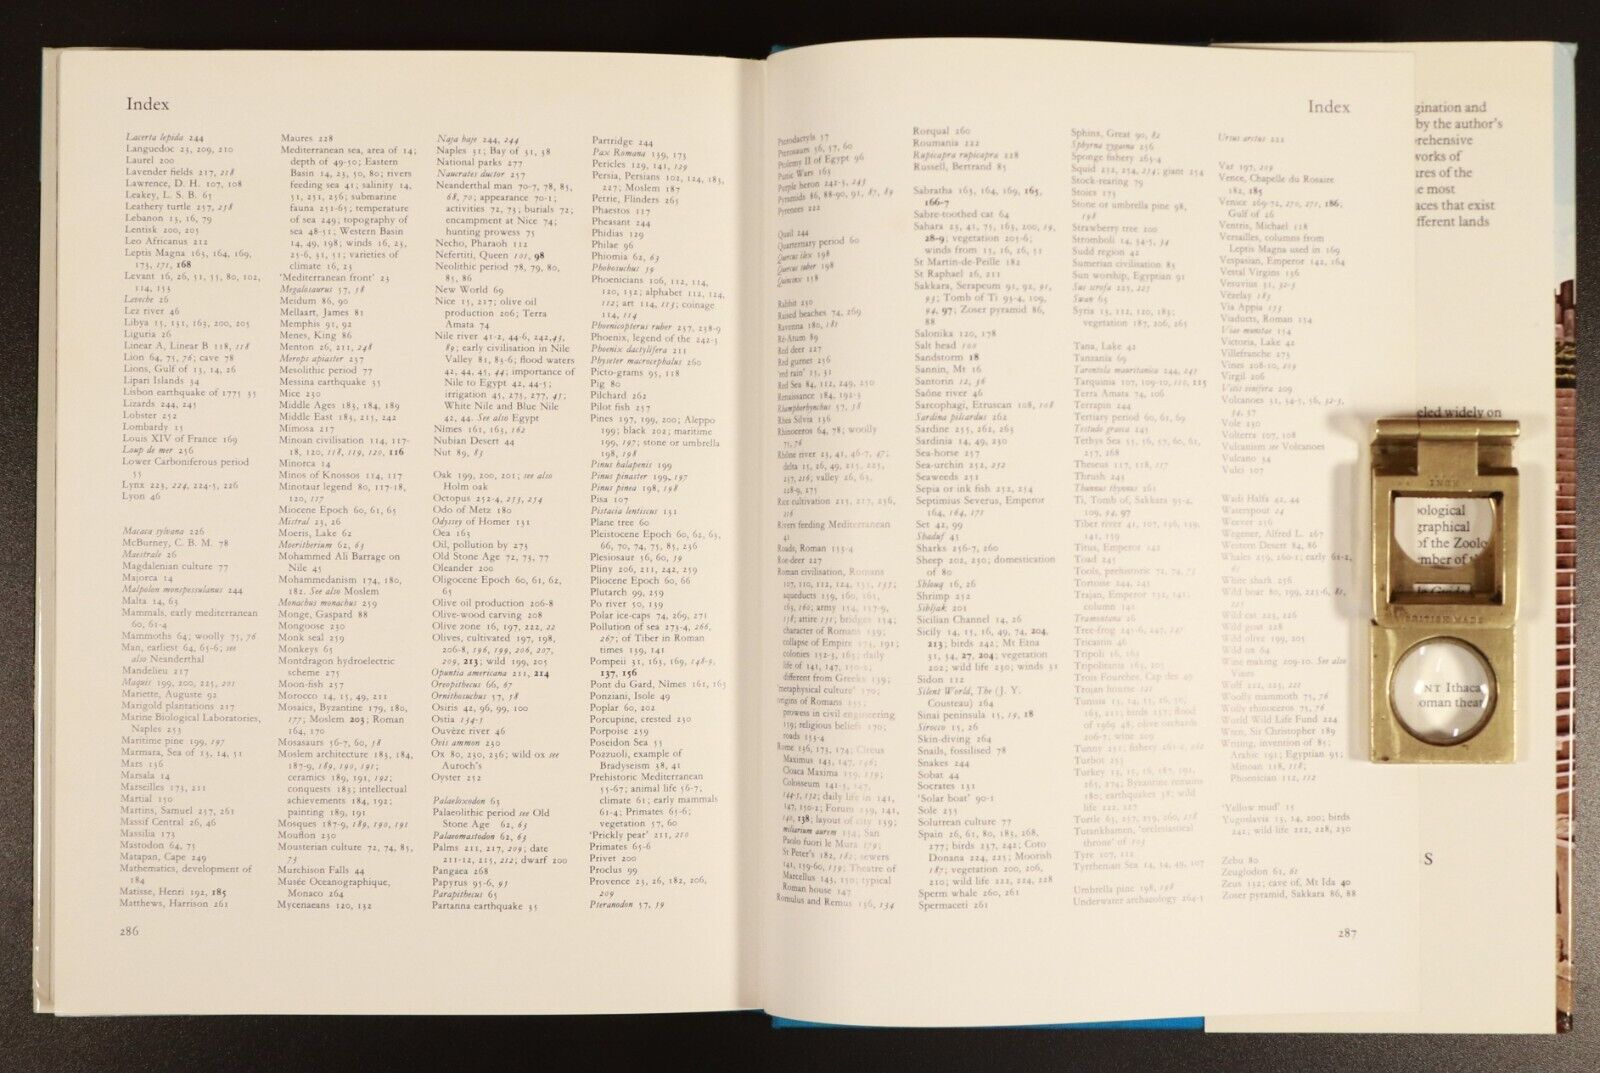 Index
Lacerta lepida 244
Languedoc 23, 209, 210
Laurel 200
Lavender fields 217, 218
Lawrence, D. H. 107, 108
Leakey, L. S. B. 65
Leathery turtle 257, 258
Lebanon 15, 16, 79
Lentisk 200, 205
Leo Africanus 212
Leptis Magna 163, 164, 169,
173, 171, 168
Levant 16, 26, 51, 55, 80, 102,
114, 153
Leveche 26
Lez river 46
Libya 15, 151, 163, 200, 205
Liguria 26
Linear A, Linear B 118, 118
Lion 64, 75, 76; cave 78
Lions, Gulf of 15, 14, 26
Lipari Islands 34
Lisbon earthquake of 1775 35
Lizards 244, 245
Lobster 252
Lombardy 15
Louis XIV of France 169
Loup de mer 256
Lower Carboniferous period
55
Lynx 223, 224, 224-5, 226
Lyon 46
Macaca sylvana 226
McBurney, C. B. M. 78
Maestrale 26
Magdalenian culture 77
Majorca 14
Malpolon monspessulanus 244
Malta 14, 63
Mammals, early mediterranean
60, 61-4
Mammoths 64; woolly 75, 76
Man, earliest 64, 65-6; see
also Neanderthal
Mandelieu 217
Maquis 199, 200, 225, 201
Mariette, Auguste 92
Marigold plantations 217
Marine Biological Laboratories,
Naples 253
Maritime pine 199, 197
Marmara, Sea of 13, 14, 51
Mars 136
Marsala 14
Marseilles 173, 211
Martial 150
Martins, Samuel 257, 261
Massif Central 26, 46
Massilia 173
Mastodon 64, 75
Matapan, Cape 249
Mathematics, development of
184
Matisse, Henri 192, 185
Matthews, Harrison 261
286
Maures 228
Mediterranean sea, area of 14;
depth of 49-50; Eastern
Basin 14, 23, 50, 80; rivers
feeding sea 41; salinity 14,
51, 251, 256; submarine
fauna 251-65; temperature
of sea 249; topography of
sea 48-51; Western Basin
14, 49, 198; winds 16, 23,
25-6, 31, 51; varieties of
climate 16, 25
'Mediterranean front' 23
Megalosaurus 57, 58
Meidum 86, 90
Mellaart, James 81
Memphis 91, 92
Menes, King 86
Menton 26, 211, 248
Merops apiaster 237
Mesolithic period 77
Messina earthquake 35
Mice 230
Middle Ages 183, 184, 189
Middle East 183, 215, 242
Mimosa 217
Minoan civilisation 114, 117-
18, 120, 118, 119, 120, 116
Minorca 14
Minos of Knossos 114, 117
Minotaur legend 80, 117-18,
120, 117
Miocene Epoch 60, 61, 65
Mistral 23, 26
Moeris, Lake 62
Moeritherium 62, 63
Mohammed Ali Barrage on
Nile 45
Mohammedanism 174, 180,
182. See also Moslem
Monachus monachus 259
Monge, Gaspard 88
Mongoose 230
Monk seal 259
Monkeys 65
Montdragon hydroelectric
scheme 275
Moon-fish 257
Morocco 14, 15, 49, 211
Mosaics, Byzantine 179, 180,
177; Moslem 203; Roman
164, 170
Mosasaurs 56-7, 60, 58
Moslem architecture 183, 184,
187-9, 189, 190, 191;
ceramics 189, 191, 192;
conquests 183; intellectual
achievements 184, 192;
painting 189, 191
Mosques 187-9, 189, 190, 191
Mouflon 230
Mousterian culture 72, 74, 85,
73
Murchison Falls 44
Musée Oceanographique,
Monaco 264
Mycenaeans 120, 132
Naja haje 244, 244
Naples 31; Bay of 31, 38
National parks 277
Naucrates ductor 257
Neanderthal man 70-7, 78, 85,
68, 70; appearance 70-1;
activities 72, 73; burials 72;
encampment at Nice 74;
hunting prowess 75
Necho, Pharaoh 112
Nefertiti, Queen 101, 98
Neolithic period 78, 79, 80,
85, 86
New World 69
Nice 15, 217; olive oil
production 206; Terra
Amata 74
Nile river 41-2, 44-6, 242, 43,
89; early civilisation in Nile
Valley 81, 83-6; flood waters
42, 44, 45, 44; importance of
Nile to Egypt 42, 44-5;
irrigation 45, 275, 277, 45;
White Nile and Blue Nile
42, 44. See also Egypt
Nîmes 161, 163, 162
Nubian Desert 44
Nut 89, 83
Oak 199, 200, 201; see also
Holm oak
Octopus 252-4, 253, 254
Odo of Metz 180
Odyssey of Homer 131
Oea 163
Oil, pollution by 273
Old Stone Age 72, 73, 77
Oleander 200
Oligocene Epoch 60, 61, 62,
65
Olive oil production 206-8
Olive-wood carving 208
Olive zone 16, 197, 222, 22
Olives, cultivated 197, 198,
206-8, 196, 199, 206, 207,
209, 213; wild 199, 205
Opuntia americana 211, 214
Oreopithecus 66, 67
Ornithosuchus 57, 58
Osiris 42, 96, 99, 100
Ostia 154-5
Ouvèze river 46
Ovis ammon 230
Ox 80, 230, 236; wild ox see
Auroch's
Oyster 252
Palaeloxodon 65
Palaeolithic period see Old
Stone Age 62, 63
Palaeomastodon 62, 63
Palms 211, 217, 209; date
211-12, 215, 212; dwarf 200
Pangaea 268
Papyrus 95-6, 95
Parapithecus 65
Partanna earthquake 35
Partridge 244
Pax Romana 139, 173
Pericles 129, 141, 129
Persia, Persians 102, 124, 183,
227; Moslem 187
Petrie, Flinders 265
Phaestos 117
Pheasant 244
Phidias 129
Philae 96
Phiomia 62, 63
Phobosuchus 59
Phoenicians 106, 112, 114,
120, 132; alphabet 112, 124,
112; art 114, 113; coinage
114, 114
Phoenicopterus ruber 237, 238-9
Phoenix, legend of the 242-3
Phoenix dactylifera 211
Physeter macrocephalus 260
Picto-grams 95, 118
Pig 80
Pilchard 262
Pilot fish 257
Pines 197, 199, 200; Aleppo
199; black 202; maritime
199, 197; stone or umbrella
198, 198
Pinus halapenis 199
Pinus pinaster 199, 197
Pinus pinea 198, 198
Pisa 107
Pistacia lentiscus 131
Plane tree 60
Pleistocene Epoch 60, 62, 63,
66, 70, 74, 75, 85, 236
Plesiosaur 56, 60, 59
Pliny 206, 211, 242, 259
Pliocene Epoch 60, 66
Plutarch 99, 259
Po river 50, 139
Polar ice-caps 74, 269, 271
Pollution of sea 273-4, 266,
267; of Tiber in Roman
times 139, 141
Pompeii 31, 163, 169, 148-9,
137, 156
Pont du Gard, Nîmes 161, 163
Ponziani, Isole 49
Poplar 60, 202
Porcupine, crested 230
Porpoise 259
Poseidon Sea 55
Pozzuoli, example of
Bradyseism 38, 41
Prehistoric Mediterranean
55-67; animal life 56-7;
climate 61; early mammals
61-4; Primates 65-6;
vegetation 57, 60
'Prickly pear' 211, 210
Primates 65-6
Privet 200
Proclus 99
Provence 23, 26, 182, 206,
209
Pteranodon 57, 59
Index
Pterodactyls 57
Pterosaurs 56, 57, 60
Ptolemy II of Egypt 96
Punic Wars 163
Purple heron 242-3, 243
Pyramids 86, 88-90, 91, 87, 89
Pyrenees 222
Quail 244
Quaternary period 60
Quercus ilex 198
Quercus suber 198
Quincunx 158
Rabbit 230
Raised beaches 74, 269
Ravenna 180, 181
Re-Atum 89
Red deer 227
Red gurnet 256
'red rain' 25, 31
Red Sea 84, 112, 249, 250
Renaissance 184, 192-3
Rhamphorhynchus 57, 58
Rhea Silvia 136
Rhinoceros 64, 78; woolly
75, 76
Rhône river 23, 41, 46-7, 47;
delta 15, 16, 49, 215, 225,
237, 216; valley 26, 63,
228-9, 275
Rice cultivation 215, 227, 236,
216
Rivers feeding Mediterranean
41
Roads, Roman 153-4
Roe-deer 227
Roman civilisation, Romans
107, 110, 112, 124, 131, 135;
aqueducts 159, 160, 161,
163, 160; army 154, 157-9,
158; attire 151; bridges 154;
character of Romans 139;
collapse of Empire 173, 191;
colonies 152-3, 163; daily
life of 141, 147, 150-2;
different from Greeks 139;
'metaphysical culture' 170;
origins of Romans 135;
prowess in civil engineering
159; religious beliefs 170;
roads 153-4
Rome 136, 173, 174; Circus
Maximus 143, 147, 146;
Cloaca Maxima 159, 159;
Colosseum 141-3, 147,
144-5, 152; daily life in 141,
147, 150-2; Forum 139, 141,
140, 138; layout of city 139;
miliarium aurem 154; San
Paolo fuori le Mura 179;
St Peter's 182, 182; sewers
141, 159-60, 159; Theatre of
Marcellus 143, 150; typical
Roman house 147
Romulus and Remus 136, 134
Rorqual 260
Roumania 222
Rupicapra rupicapra 228
Russell, Bertrand 85
Sabratha 163, 164, 169, 165,
166-7
Sabre-toothed cat 64
Sahara 23, 41, 75, 163, 200, 19,
28-9; vegetation 205-6;
winds from 15, 16, 26, 51
St Martin-de-Peille 182
St Raphael 26, 211
Sakkara, Serapeum 91, 92, 91,
93; Tomb of Ti 93-4, 109,
94, 97; Zoser pyramid 86,
88
Salonika 120, 178
Salt head 100
Sandstorm 18
Sannin, Mt 16
Santorin 12, 36
Saône river 46
Sarcophagi, Etruscan 108, 108
Sardina pilcardus 262
Sardine 255, 262, 263
Sardinia 14, 49, 230
Sea-horse 257
Sea-urchin 252, 252
Seaweeds 251
Sepia or ink fish 252, 254
Septimius Severus, Emperor
164, 164, 171
Set 42, 99
Shaduf 45
Sharks 256-7, 260
Sheep 202, 230; domestication
of 80
Shlouq 16, 26
Shrimp 252
Sibljak 201
Sicilian Channel 14, 26
Sicily 14, 15, 16, 49, 74, 204,
213; birds 242; Mt Etna
31, 34, 27, 204; vegetation
202; wild life 230; winds 31
Sidon 112
Silent World, The (J. Y.
Cousteau) 264
Sinai peninsula 15, 19, 28
Sirocco 15, 26
Skin-diving 264
Snails, fossilised 78
Snakes 244
Sobat 44
Socrates 131
'Solar boat' 90-1
Sole 255
Solutrean culture 77
Spain 26, 61, 80, 183, 268,
277; birds 237, 242; Coto
Donana 224, 225; Moorish
187; vegetation 200, 206,
210; wild life 222, 224, 228
Sperm whale 260, 261
Spermaceti 261
Sphinx, Great 90, 82
Sphyrna zygaena 256
Sponge fishery 263-4
Squid 252, 254, 254; giant 254
Stock-rearing 79
Stoics 173
Stone or umbrella pine 98,
198
Strawberry tree 200
Stromboli 14, 34-5, 34
Sudd region 42
Sumerian civilisation 85
Sun worship, Egyptian 91
Sus scrofa 225, 225
Swan 65
Syria 15, 112, 120, 183;
vegetation 187, 206, 265
Tana, Lake 42
Tanzania 69
Tarentola mauritanica 244, 247
Tarquinia 107, 109-10, 110, 125
Terra Amata 74, 106
Terrapin 244
Tertiary period 60, 61, 69
Testudo graeca 245
Tethys Sea 55, 56, 57, 60, 61,
257, 268
Theseus 117, 118, 117
Thrush 245
Thunnus thynnus 261
Ti, Tomb of, Sakkara 93-4,
109, 94, 97
Tiber river 41, 107, 136, 139,
141, 159
Titus, Emperor 141
Toad 245
Tools, prehistoric 72, 74, 73
Tortoise 244, 245
Trajan, Emperor 152, 141;
column 141
Tramontana 26
Tree-frog 245-6, 247
Tricastin 46
Tripoli 16, 163
Tripolitania 163, 205
Trois Fourches, Cap des 49
Trojan horse 121
Tunisia 15, 14, 15, 26, 50,
163, 211; birds 237; flood
of 1969 48; olive orchards
206-7; wine 209
Tunny 251; fishery 261-2, 262
Turbot 255
Turkey 13, 15, 16, 187, 191,
265, 274; Byzantine remains
180; earthquakes 38; wild
life 222, 227
Turtle 63, 257, 259, 260, 258
Tutankhamen, 'ecclesiastical
throne' of 103
Tyre 107, 112
Tyrrhenian Sea 14, 34, 49, 107
Umbrella pine 198, 198
Underwater archaeology 264-5
Ursus arctus 222
Var 197, 219
Vence, Chapelle du Rosaire
182, 185
Venice 269-72, 270, 271, 186;
Gulf of 26
Ventris, Michael 118
Versailles, columns from
Leptis Magna used in 169
Vespasian, Emperor 142, 164
Vestal Virgins 136
Vesuvius 31, 32-3
Vézelay 183
Via Appia 173
Viaducts, Roman 154
Viae munitae 154
Victoria, Lake 42
Villefranche 275
Vines 208-10, 209
Virgil 206
Vitis vinifera 209
Volcanoes 31, 34-5, 36, 32-3,
34, 37
Vole 230
Volterra 107, 108
Vulcanism see Volcanoes
Vulcano 34
Vulci 107
Wadi Halfa 42, 44
Waterspout 24
Weever 256
Wegener, Alfred L. 267
Western Desert 84, 86
Whales 259, 260-1; early 61-2,
White shark 256
Wild boar 80, 199, 225-6, 81,
225
Wild cat 223, 226
Wild goat 228
Wild olive 199, 205
Wild ox 64
Wine making 209-10. See also
Vines
Wolf 222, 223, 221
Woolly mammoth 75, 76
Woolly rhinoceros 75, 76
World Wild Life Fund 224
Wren, Sir Christopher 189
Writing, invention of 85;
Arabic 191; Egyptian 95;
Minoan 118, 118;
Phoenician 112, 112
'Yellow mud' 15
Yugoslavia 13, 14, 200; birds
242; wild life 222, 228, 230
Zebu 80
Zeuglodon 61, 62
Zeus 132; cave of, Mt Ida 40
Zoser pyramid, Sakkara 86, 88
287
gination and
by the author's
rehensive
works of
ares of the
e most
aces that exist
fferent lands
eled widely on
INCH
ological
graphical
of the Zoolo
mber of
BRITISH MADE
NT Ithaca
oman theat
S